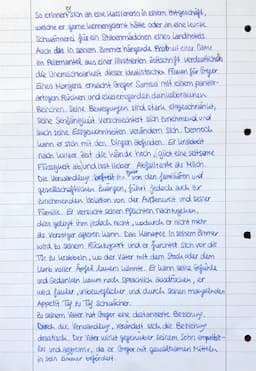 So erinnert er sich an eine Kassiererin in einem Hutgeschäft,
welche er gerne kennengelernt hätte oder an eine kurze
Schwärmerei für ein Stubenmädchen eines Landhotels.
Auch das in seinem Zimmer hängende Porträt einer Dame
im Pelzmantel aus einer illustrierten Zeitschrift verdeutlichen
die Unerreichbarkeit dieser idealistischen Frauen für Gregor.
Eines Morgens erwacht Gregor Samsa mit einem panzer-
artigen Rücken und
Beinchen. Seine Bewegungen sind stark eingeschränkt,
seine Sehfähigkeit verschlechtert sich zunehmend und
auch seine Essgewohnheiten verändern sich. Dennoch
kann er sich mit den Dingen
nach kurzer Zeit die Wände hoch, gibt eine seltsame
Flüssigkeit ab und isst lieber Abfallreste als Milch.
Die Verwandlung befreit ihn zwar von den familiären und
gesellschaftlichen Zwängen, führt jedoch auch zur
zunehmenden Isolation von der Außenwelt und seiner
Familie. Er versucht seinen Pflichten nachzugehen,
dies gelingt ihm jedoch nicht, wodurch er nicht mehr
als Versorger agieren kann. Das Kanapee in seinem Zimmer
wird zu seinem Rückzugsort und er fürchtet sich vor die
Tür zu krabbeln, wo der Vater mit dem Stock oder dem
Korb voller Äpfel lauern könnte. Er kann seine Gefühle
und Gedanken kaum noch sprachlich ausdrücken, er
wird fauler, unbeweglicher und durch seinen mangelnden
Appetit Tag zu Tag schwächer.
Zu seinem Vater hat Gregor eine distanzierte Beziehung.
Durch die Verwandlung, verändert sich die Beziehung
drastisch. Der Vater wirkt gegenüber seinem Sohn empathie-
los und aggressiv, da er Gregor mit gewaltsamen Mitteln
in sein Zimmer befördert.